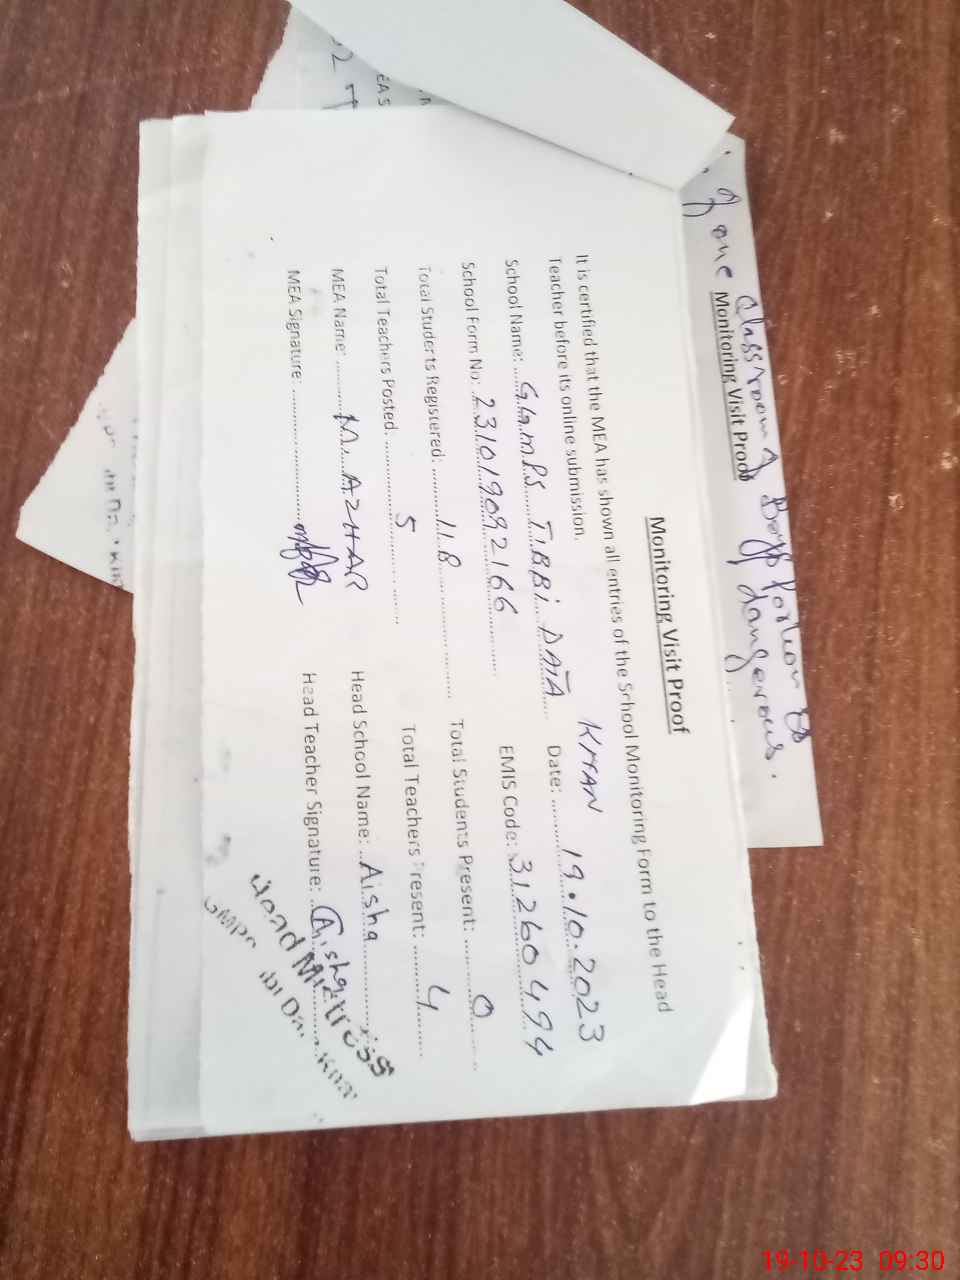 of one classroom
Boys portion is
dangerous.
Monitoring Visit Proof
Monitoring Visit Proof
It is certified that the MEA has shown all entries of the School Monitoring Form to the Head
Teacher before its online submission.
School Name: G.G.M.P.S TIBBI DATA KHAN Date: 19.10.2023
School Form No: 231019092166 EMIS Code: 31260494
Total Students Registered: 118 Total Students Present: 0
Total Teachers Posted: 5 Total Teachers Present: 4
MEA Name: M. AZHAR Head School Name: Aisha
MEA Signature: Head Teacher Signature: Aisha
Head Mistress
19-10-23 09:30